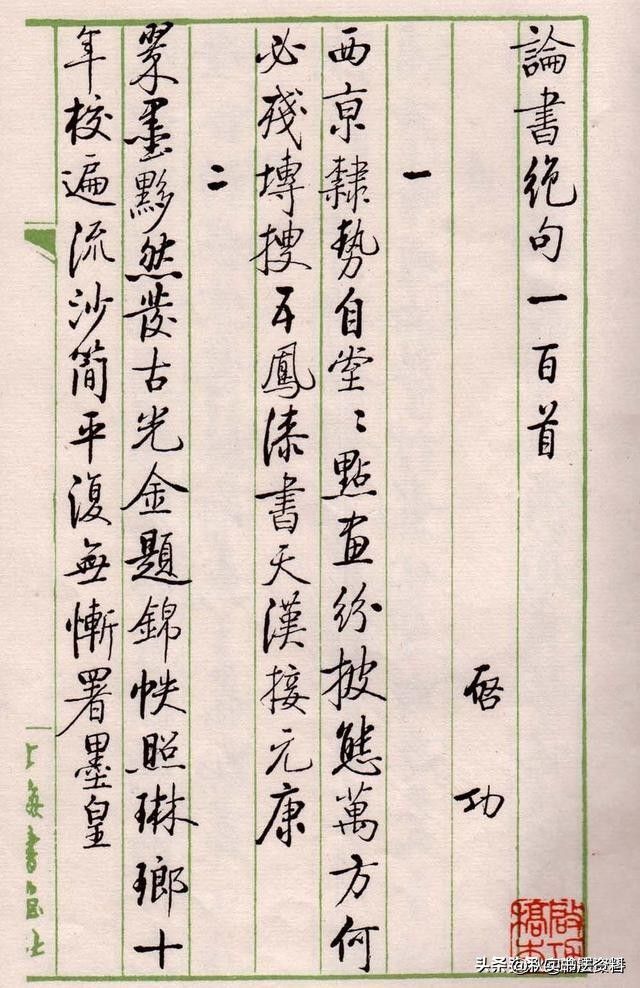 論書絕句一百首
启功
一
西京隸勢自堂〻點畫紛披態萬方何
必殘塼搜五鳳漆書天漢接元康
二
翠墨黟然發古光金題錦帙照琳瑯十
年校遍流沙簡平復無慚署墨皇
上海書畫社
头条 @秋实书法资料